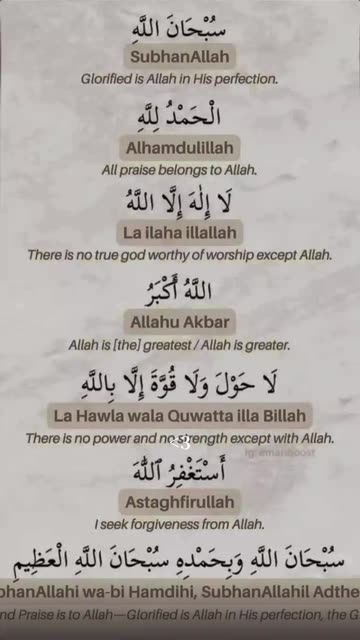 سُبْحَانَ اللَّهِ
SubhanAllah
Glorified is Allah in His perfection.
الْحَمْدُ لِلَّهِ
Alhamdulillah
All praise belongs to Allah.
لَا إِلٰهَ إِلَّا اللَّهُ
La ilaha illallah
There is no true god worthy of worship except Allah.
اللَّهُ أَكْبَرُ
Allahu Akbar
Allah is [the] greatest / Allah is greater.
لَا حَوْلَ وَلَا قُوَّةَ إِلَّا بِاللَّهِ
La Hawla wala Quwatta illa Billah
There is no power and no strength except with Allah.
<3
ig: emanboost
أَسْتَغْفِرُ ٱللَّهَ
Astaghfirullah
I seek forgiveness from Allah.
سُبْحَانَ اللَّهِ وَبِحَمْدِهِ سُبْحَانَ اللَّهِ الْعَظِيمِ
bhanAllahi wa-bi Hamdihi, SubhanAllahil Adthe
nd Praise is to Allah—Glorified is Allah in His perfection, the G